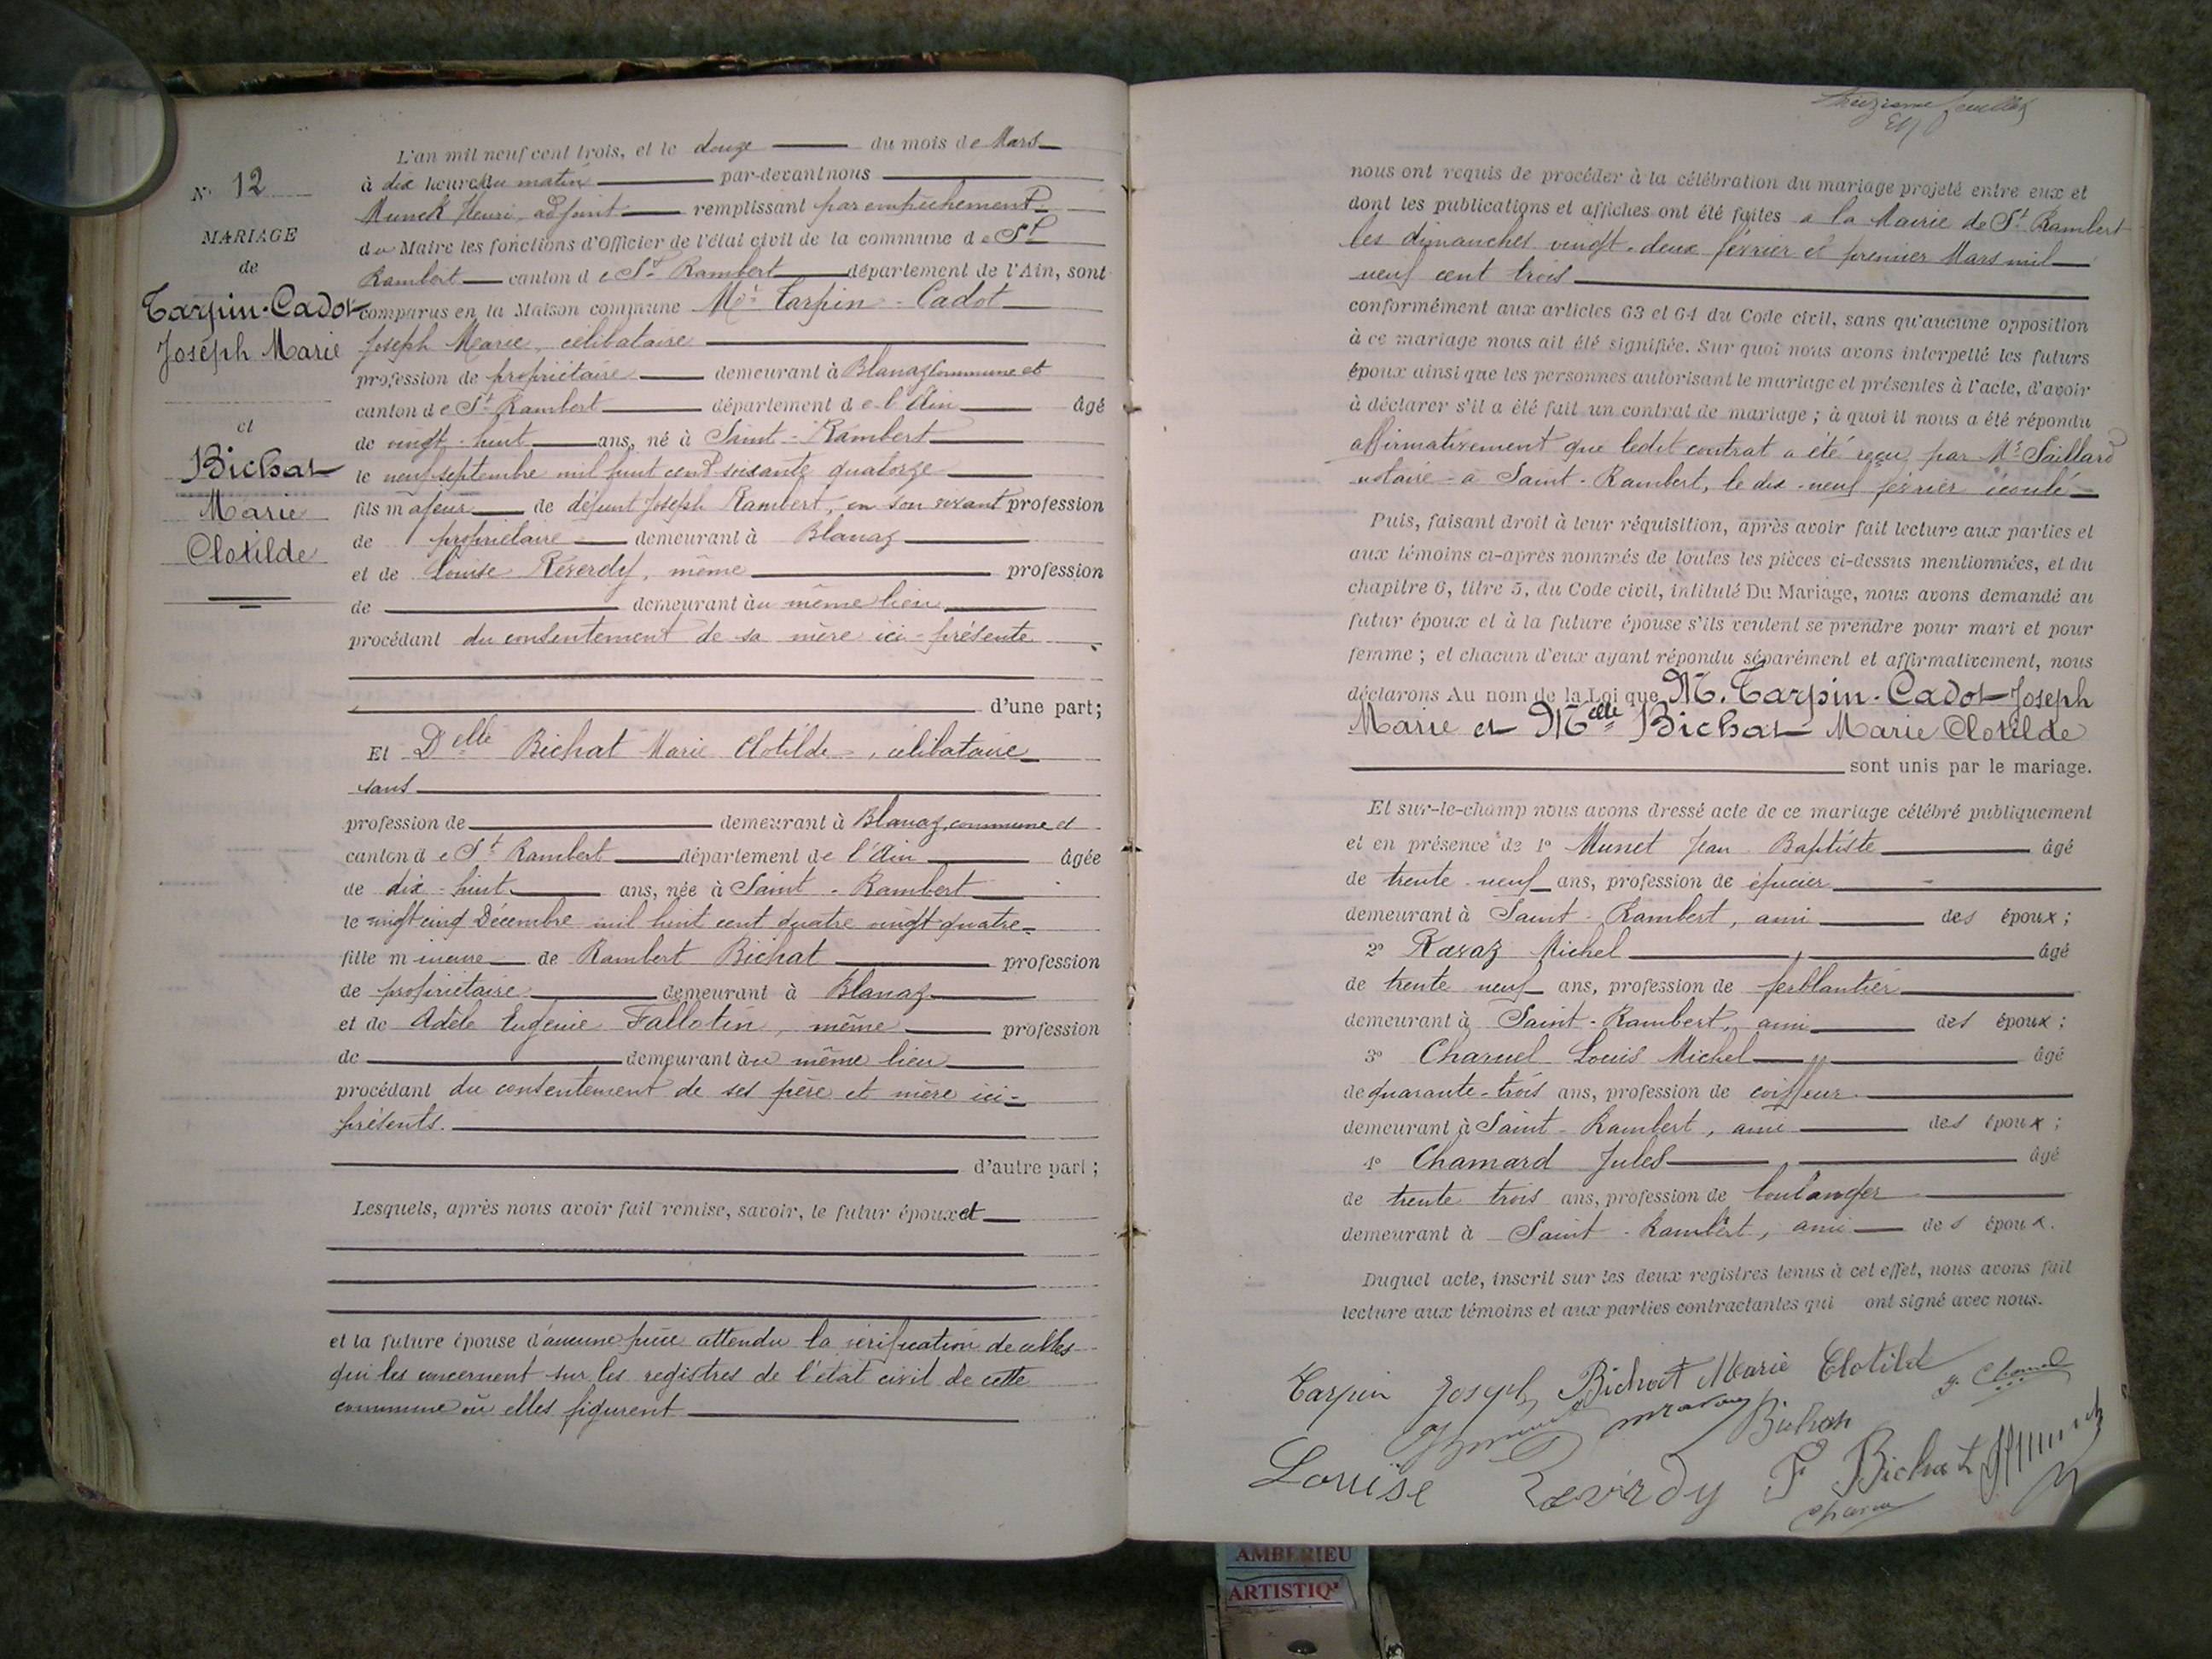 N° 12
MARIAGE
de
Tarpin-Cadot
Joseph Marie
et
Bichat
Marie
Clotilde
L'an mil neuf cent trois, et le douze du mois de Mars
à dix heures du matin par-devant nous
Munck Henri, adjoint remplissant par empêchement
du Maire les fonctions d'Officier de l'état civil de la commune de St
Rambert canton de St Rambert département de l'Ain, sont
comparus en la Maison commune Mr Tarpin-Cadot
Joseph Marie, célibataire
profession de propriétaire demeurant à Blanaz commune et
canton de St Rambert département de l'Ain âgé
de vingt-huit ans, né à Saint-Rambert
le neuf septembre mil huit cent soixante quatorze
fils majeur de défunt Joseph Rambert, en son vivant profession
de propriétaire demeurant à Blanaz
et de Louise Réverdy, même profession
de demeurant au même lieu
procédant du consentement de sa mère ici-présente
d'une part;
Et Delle Bichat Marie Clotilde, célibataire
sans
profession de demeurant à Blanaz, commune et
canton de St Rambert département de l'Ain âgée
de dix-huit ans, née à Saint-Rambert
le vingt cinq Décembre mil huit cent quatre vingt quatre
fille mineure de Rambert Bichat profession
de propriétaire demeurant à Blanaz
et de Adèle Eugénie Fallotin, même profession
de demeurant au même lieu
procédant du consentement de ses père et mère ici-
présents.
d'autre part;
Lesquels, après nous avoir fait remise, savoir, le futur époux et
et la future épouse d'aucune pièce attendu la vérification de celles
qui les concernent sur les registres de l'état civil de cette
commune où elles figurent
feuillet
nous ont requis de procéder à la célébration du mariage projeté entre eux et
dont les publications et affiches ont été faites à la Mairie de St Rambert
les dimanches vingt-deux février et premier Mars mil
neuf cent trois
conformément aux articles 63 et 64 du Code civil, sans qu'aucune opposition
à ce mariage nous ait été signifiée. Sur quoi nous avons interpellé les futurs
époux ainsi que les personnes autorisant le mariage et présentes à l'acte, d'avoir
à déclarer s'il a été fait un contrat de mariage; à quoi il nous a été répondu
affirmativement que ledit contrat a été reçu par Me Saillard
notaire à Saint-Rambert, le dix-neuf février écoulé
Puis, faisant droit à leur réquisition, après avoir fait lecture aux parties et
aux témoins ci-après nommés de toutes les pièces ci-dessus mentionnées, et du
chapitre 6, titre 5, du Code civil, intitulé Du Mariage, nous avons demandé au
futur époux et à la future épouse s'ils veulent se prendre pour mari et pour
femme; et chacun d'eux ayant répondu séparément et affirmativement, nous
déclarons Au nom de la Loi que M. Tarpin-Cadot Joseph
Marie et Melle Bichat Marie Clotilde
sont unis par le mariage.
Et sur-le-champ nous avons dressé acte de ce mariage célébré publiquement
et en présence de 1° Munet Jean Baptiste âgé
de trente-neuf ans, profession de épicier
demeurant à Saint-Rambert, ami des époux;
2° Ravaz Michel âgé
de trente neuf ans, profession de ferblantier
demeurant à Saint-Rambert, ami des époux;
3° Charvel Louis Michel âgé
de quarante-trois ans, profession de coiffeur
demeurant à Saint-Rambert, ami des époux;
4° Chamard Jules âgé
de trente trois ans, profession de boulanger
demeurant à Saint-Rambert, ami des époux.
Duquel acte, inscrit sur les deux registres tenus à cet effet, nous avons fait
lecture aux témoins et aux parties contractantes qui ont signé avec nous.
Tarpin Joseph Bichat Marie Clotilde
Bichat
Louise Reverdy Bichat
AMBERIEU
ARTISTIQ